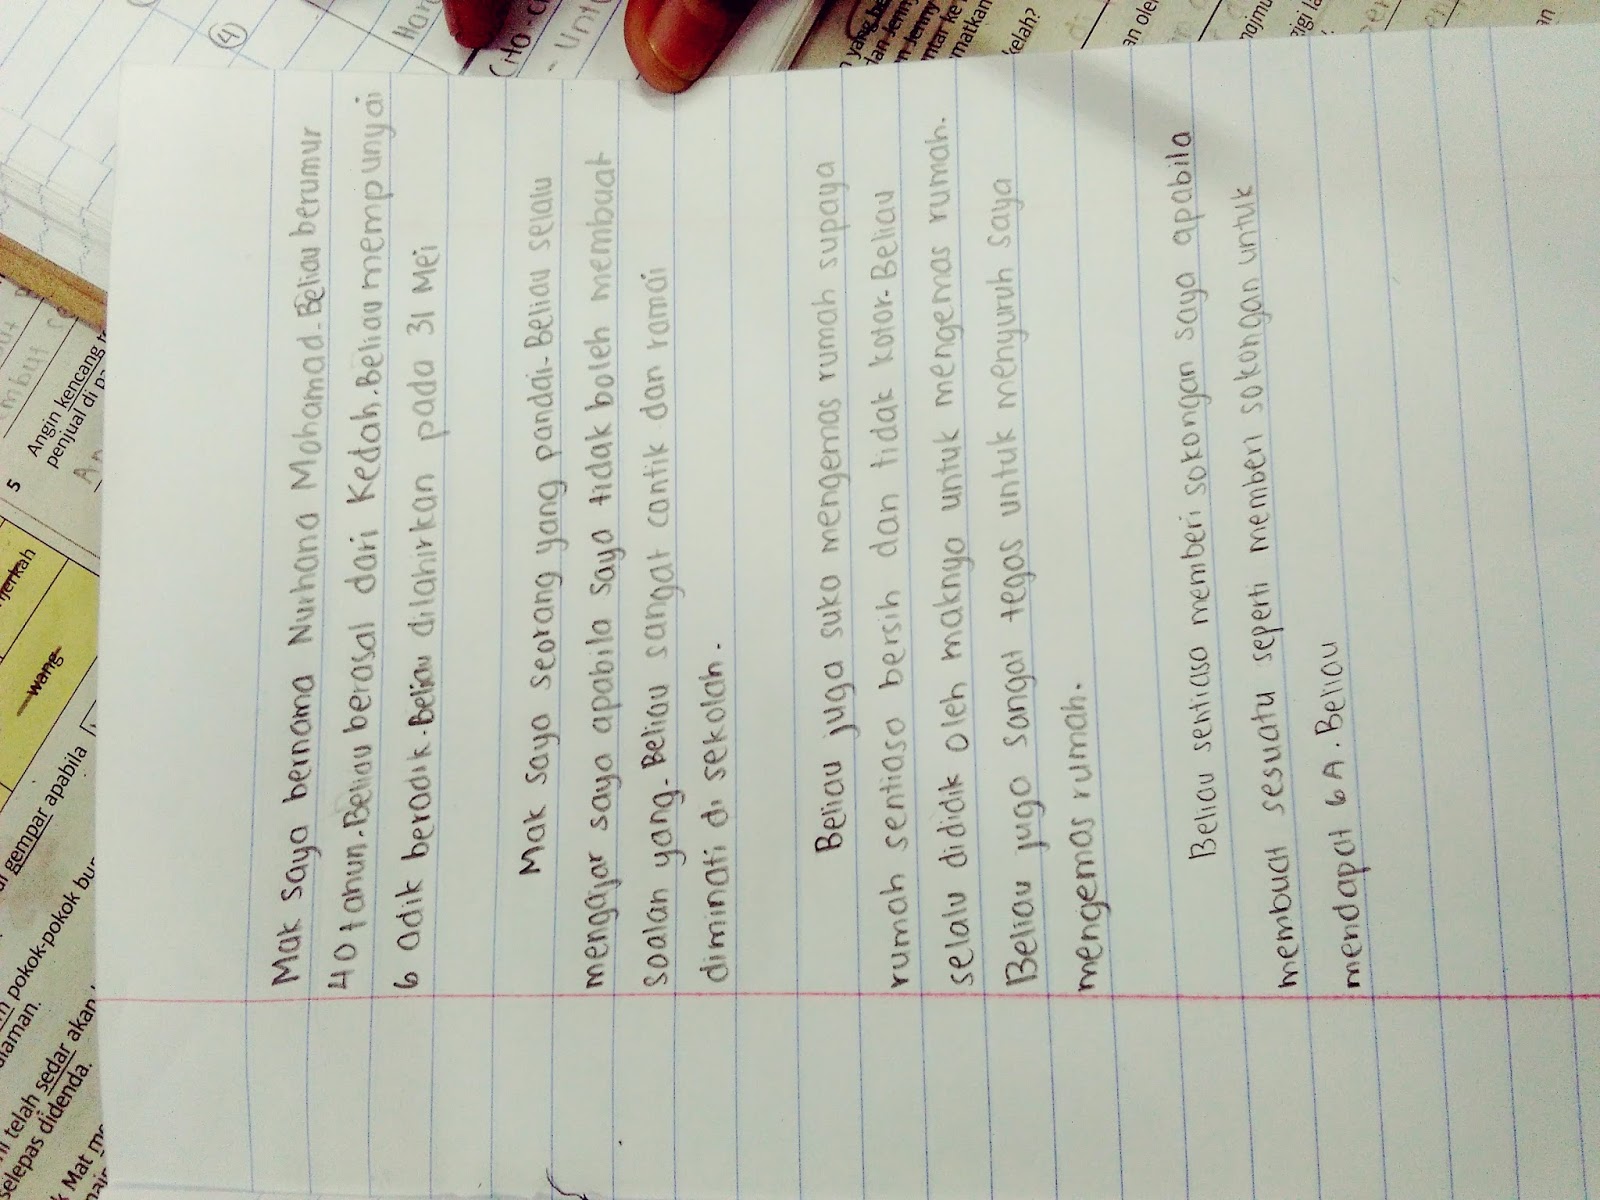 Mak saya bernama Nurhana Mohamad. Beliau berumur
40 tahun. Beliau berasal dari Kedah. Beliau mempunyai
6 adik beradik. Beliau dilahirkan pada 31 Mei
Mak saya seorang yang pandai. Beliau selalu
mengajar saya apabila saya tidak boleh membuat
soalan yang. Beliau sangat cantik dan ramai
diminati di sekolah.
Beliau juga suka mengemas rumah supaya
rumah sentiasa bersih dan tidak kotor. Beliau
selalu didik oleh maknya untuk mengemas rumah.
Beliau juga sangat tegas untuk menyuruh saya
mengemas rumah.
Beliau sentiasa memberi sokongan saya apabila
membuat sesuatu seperti memberi sokongan untuk
mendapat 6A. Beliau
5
Angin kencang
penjual di
wang
gempar apabila
pokok-pokok
telah sedar akan
selepas didenda.
Mat
4
Jenny
kelah?